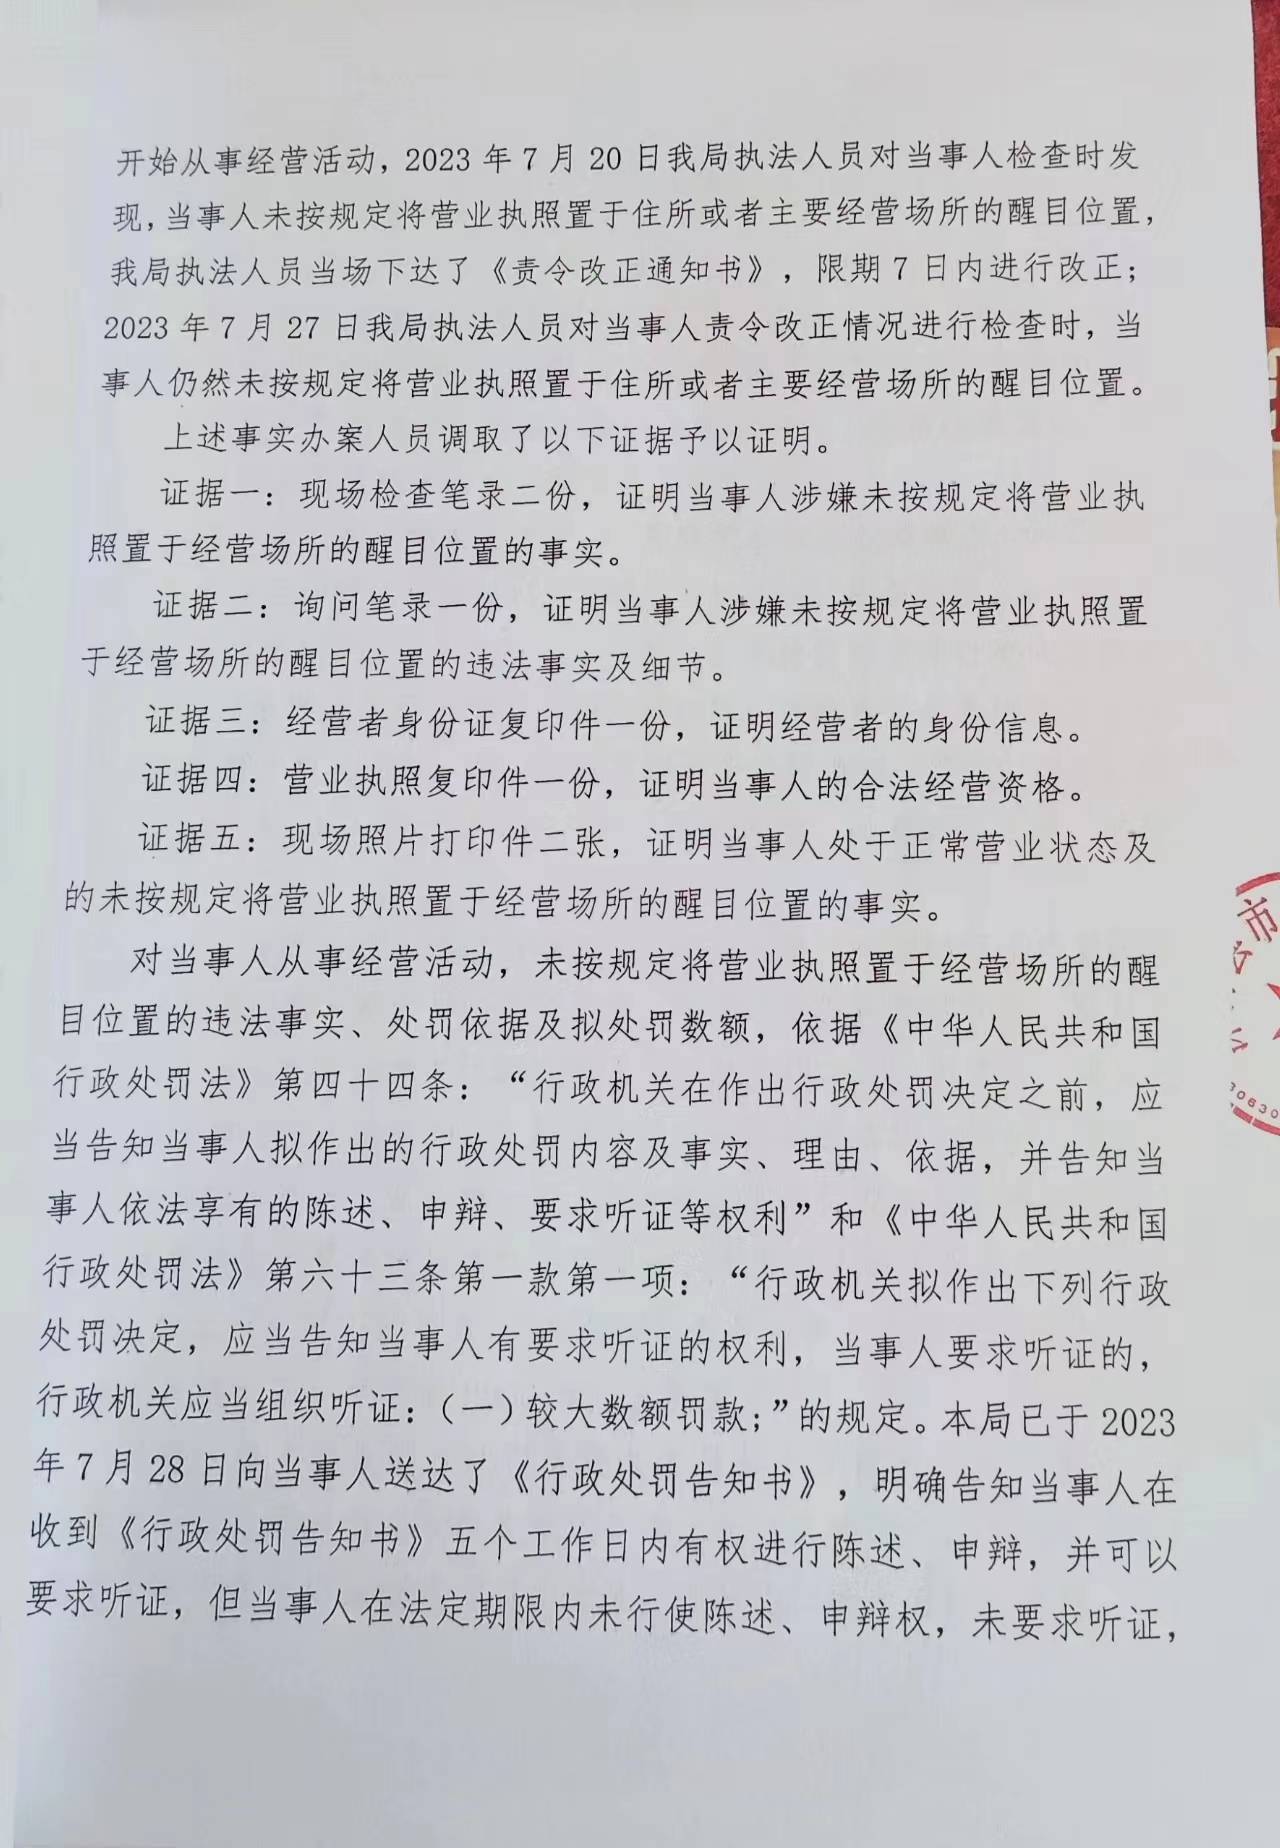 开始从事经营活动，2023 年 7 月 20 日我局执法人员对当事人检查时发
现，当事人未按规定将营业执照置于住所或者主要经营场所的醒目位置，
我局执法人员当场下达了《责令改正通知书》，限期 7 日内进行改正；
2023 年 7 月 27 日我局执法人员对当事人责令改正情况进行检查时，当
事人仍然未按规定将营业执照置于住所或者主要经营场所的醒目位置。
上述事实办案人员调取了以下证据予以证明。
证据一：现场检查笔录二份，证明当事人涉嫌未按规定将营业执
照置于经营场所的醒目位置的事实。
证据二：询问笔录一份，证明当事人涉嫌未按规定将营业执照置
于经营场所的醒目位置的违法事实及细节。
证据三：经营者身份证复印件一份，证明经营者的身份信息。
证据四：营业执照复印件一份，证明当事人的合法经营资格。
证据五：现场照片打印件二张，证明当事人处于正常营业状态及
的未按规定将营业执照置于经营场所的醒目位置的事实。
对当事人从事经营活动，未按规定将营业执照置于经营场所的醒
目位置的违法事实、处罚依据及拟处罚数额，依据《中华人民共和国
行政处罚法》第四十四条：“行政机关在作出行政处罚决定之前，应
当告知当事人拟作出的行政处罚内容及事实、理由、依据，并告知当
事人依法享有的陈述、申辩、要求听证等权利”和《中华人民共和国
行政处罚法》第六十三条第一款第一项：“行政机关拟作出下列行政
处罚决定，应当告知当事人有要求听证的权利，当事人要求听证的，
行政机关应当组织听证：（一）较大数额罚款；”的规定。本局已于 2023
年 7 月 28 日向当事人送达了《行政处罚告知书》，明确告知当事人在
收到《行政处罚告知书》五个工作日内有权进行陈述、申辩，并可以
要求听证，但当事人在法定期限内未行使陈述、申辩权，未要求听证，
市